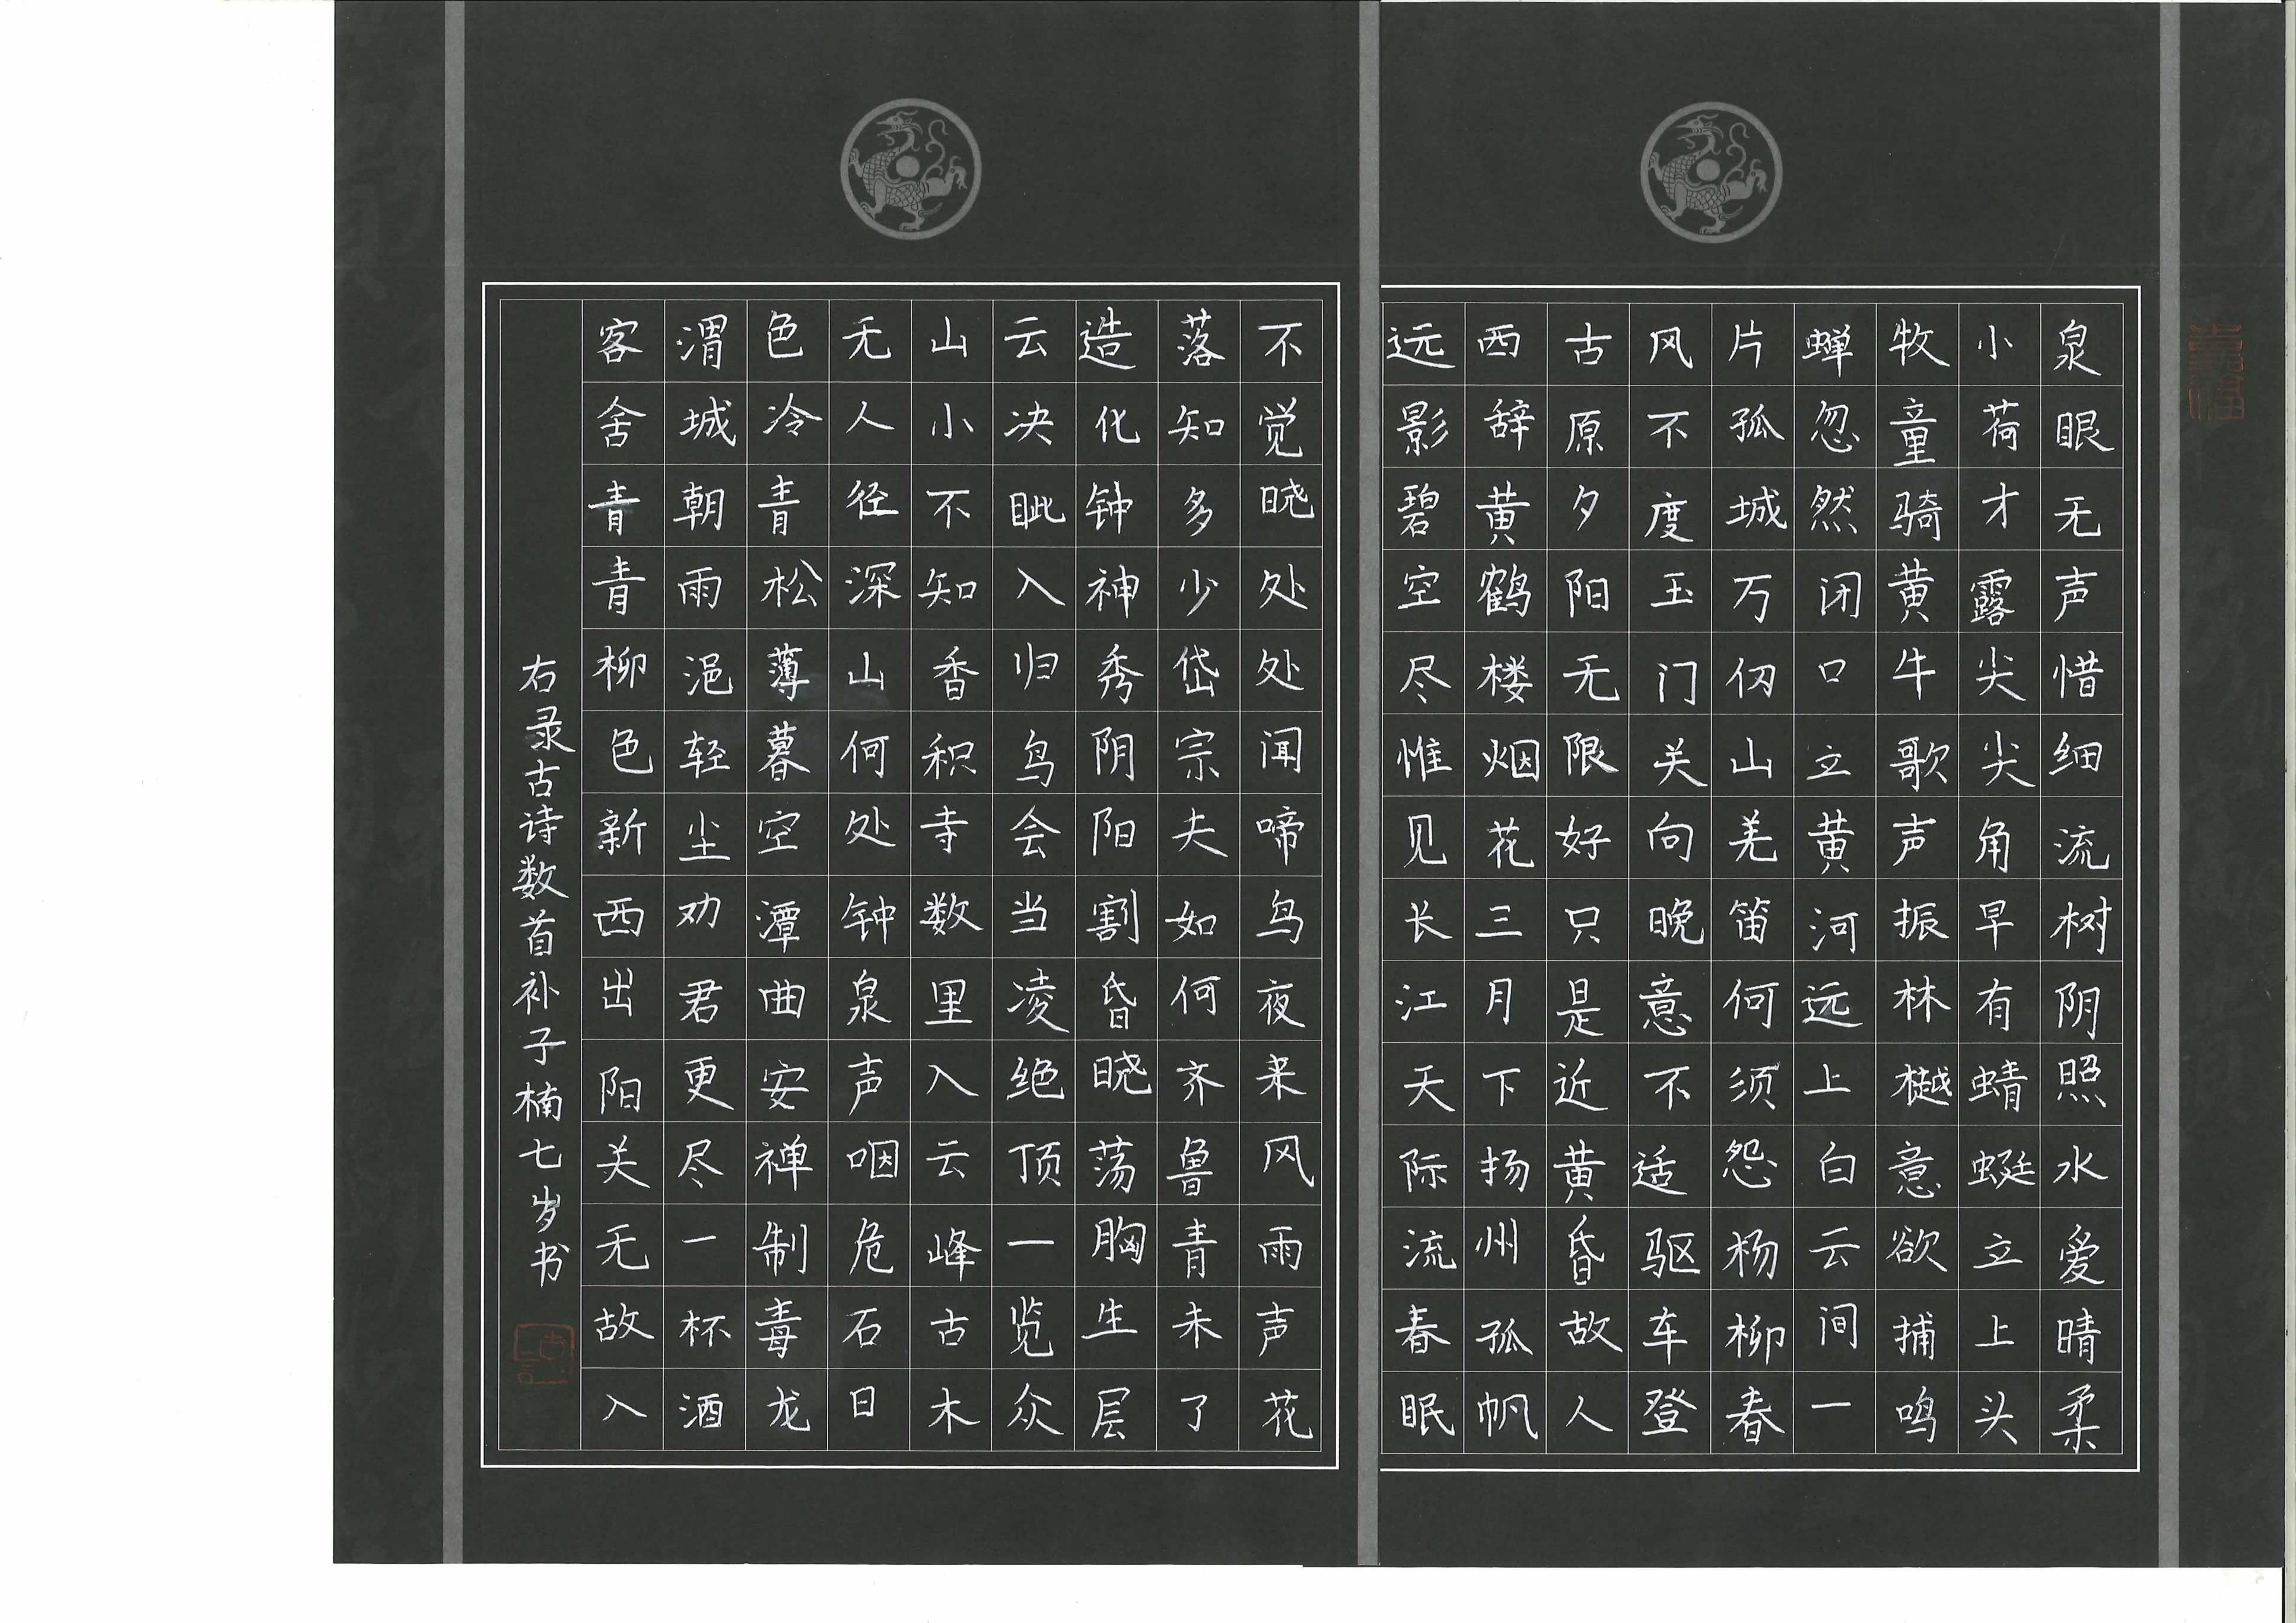 嘉福
泉眼无声惜细流树阴照水爱晴柔
小荷才露尖尖角早有蜻蜓立上头
牧童骑黄牛歌声振林樾意欲捕鸣
蝉忽然闭口立黄河远上白云间一
片孤城万仞山羌笛何须怨杨柳春
风不度玉门关向晚意不适驱车登
古原夕阳无限好只是近黄昏故人
西辞黄鹤楼烟花三月下扬州孤帆
远影碧空尽惟见长江天际流春眠
不觉晓处处闻啼鸟夜来风雨声花
落知多少岱宗夫如何齐鲁青未了
造化钟神秀阴阳割昏晓荡胸生层
云决眦入归鸟会当凌绝顶一览众
山小不知香积寺数里入云峰古木
无人径深山何处钟泉声咽危石日
色冷青松薄暮空潭曲安禅制毒龙
渭城朝雨浥轻尘劝君更尽一杯酒
客舍青青柳色新西出阳关无故入
右录古诗数首补子楠七岁书